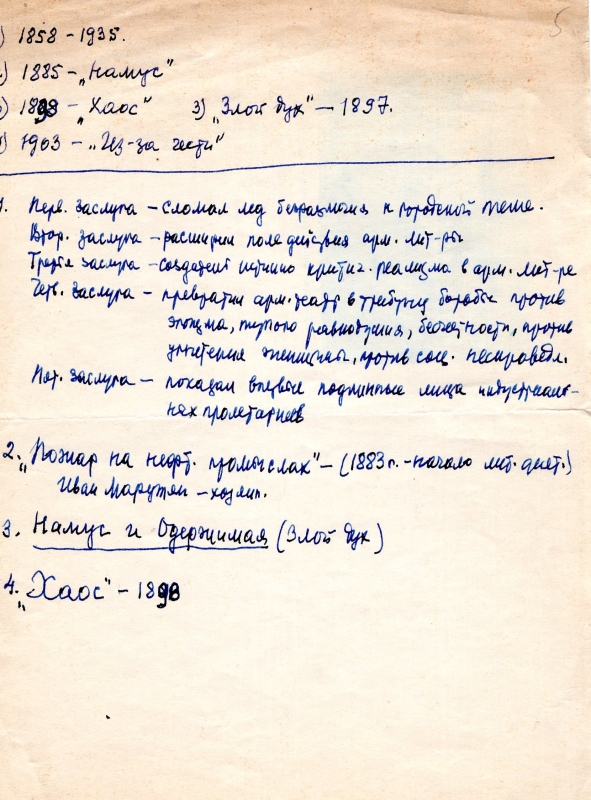 5
) 1858 – 1935.
) 1885 – „Намус"
) 1898 – „Хаос" 3) „Злой дух" – 1897.
) 1903 – „Из-за чести"
1. Перв. заслуга – сломал лед безразличия к городской теме.
Втор. заслуга – расширил поле действия арм. лит-ры
Третья заслуга – создатель критич. реализма в арм. лит-ре
Четв. заслуга – превратил арм. театр в трибуну борьбы против
эгоизма, тупого равнодушия, бесчестности, против
угнетения женщины, против соц. несправедл.
Пят. заслуга – показал впервые подлинные лица индустриаль-
ных пролетариев
2. „Пожар на нефт. промыслах" – (1883 г. – начало лит. деят.)
Иван Марутян – хозяин.
3. Намус и Одержимая (Злой дух)
4. „Хаос" – 1898